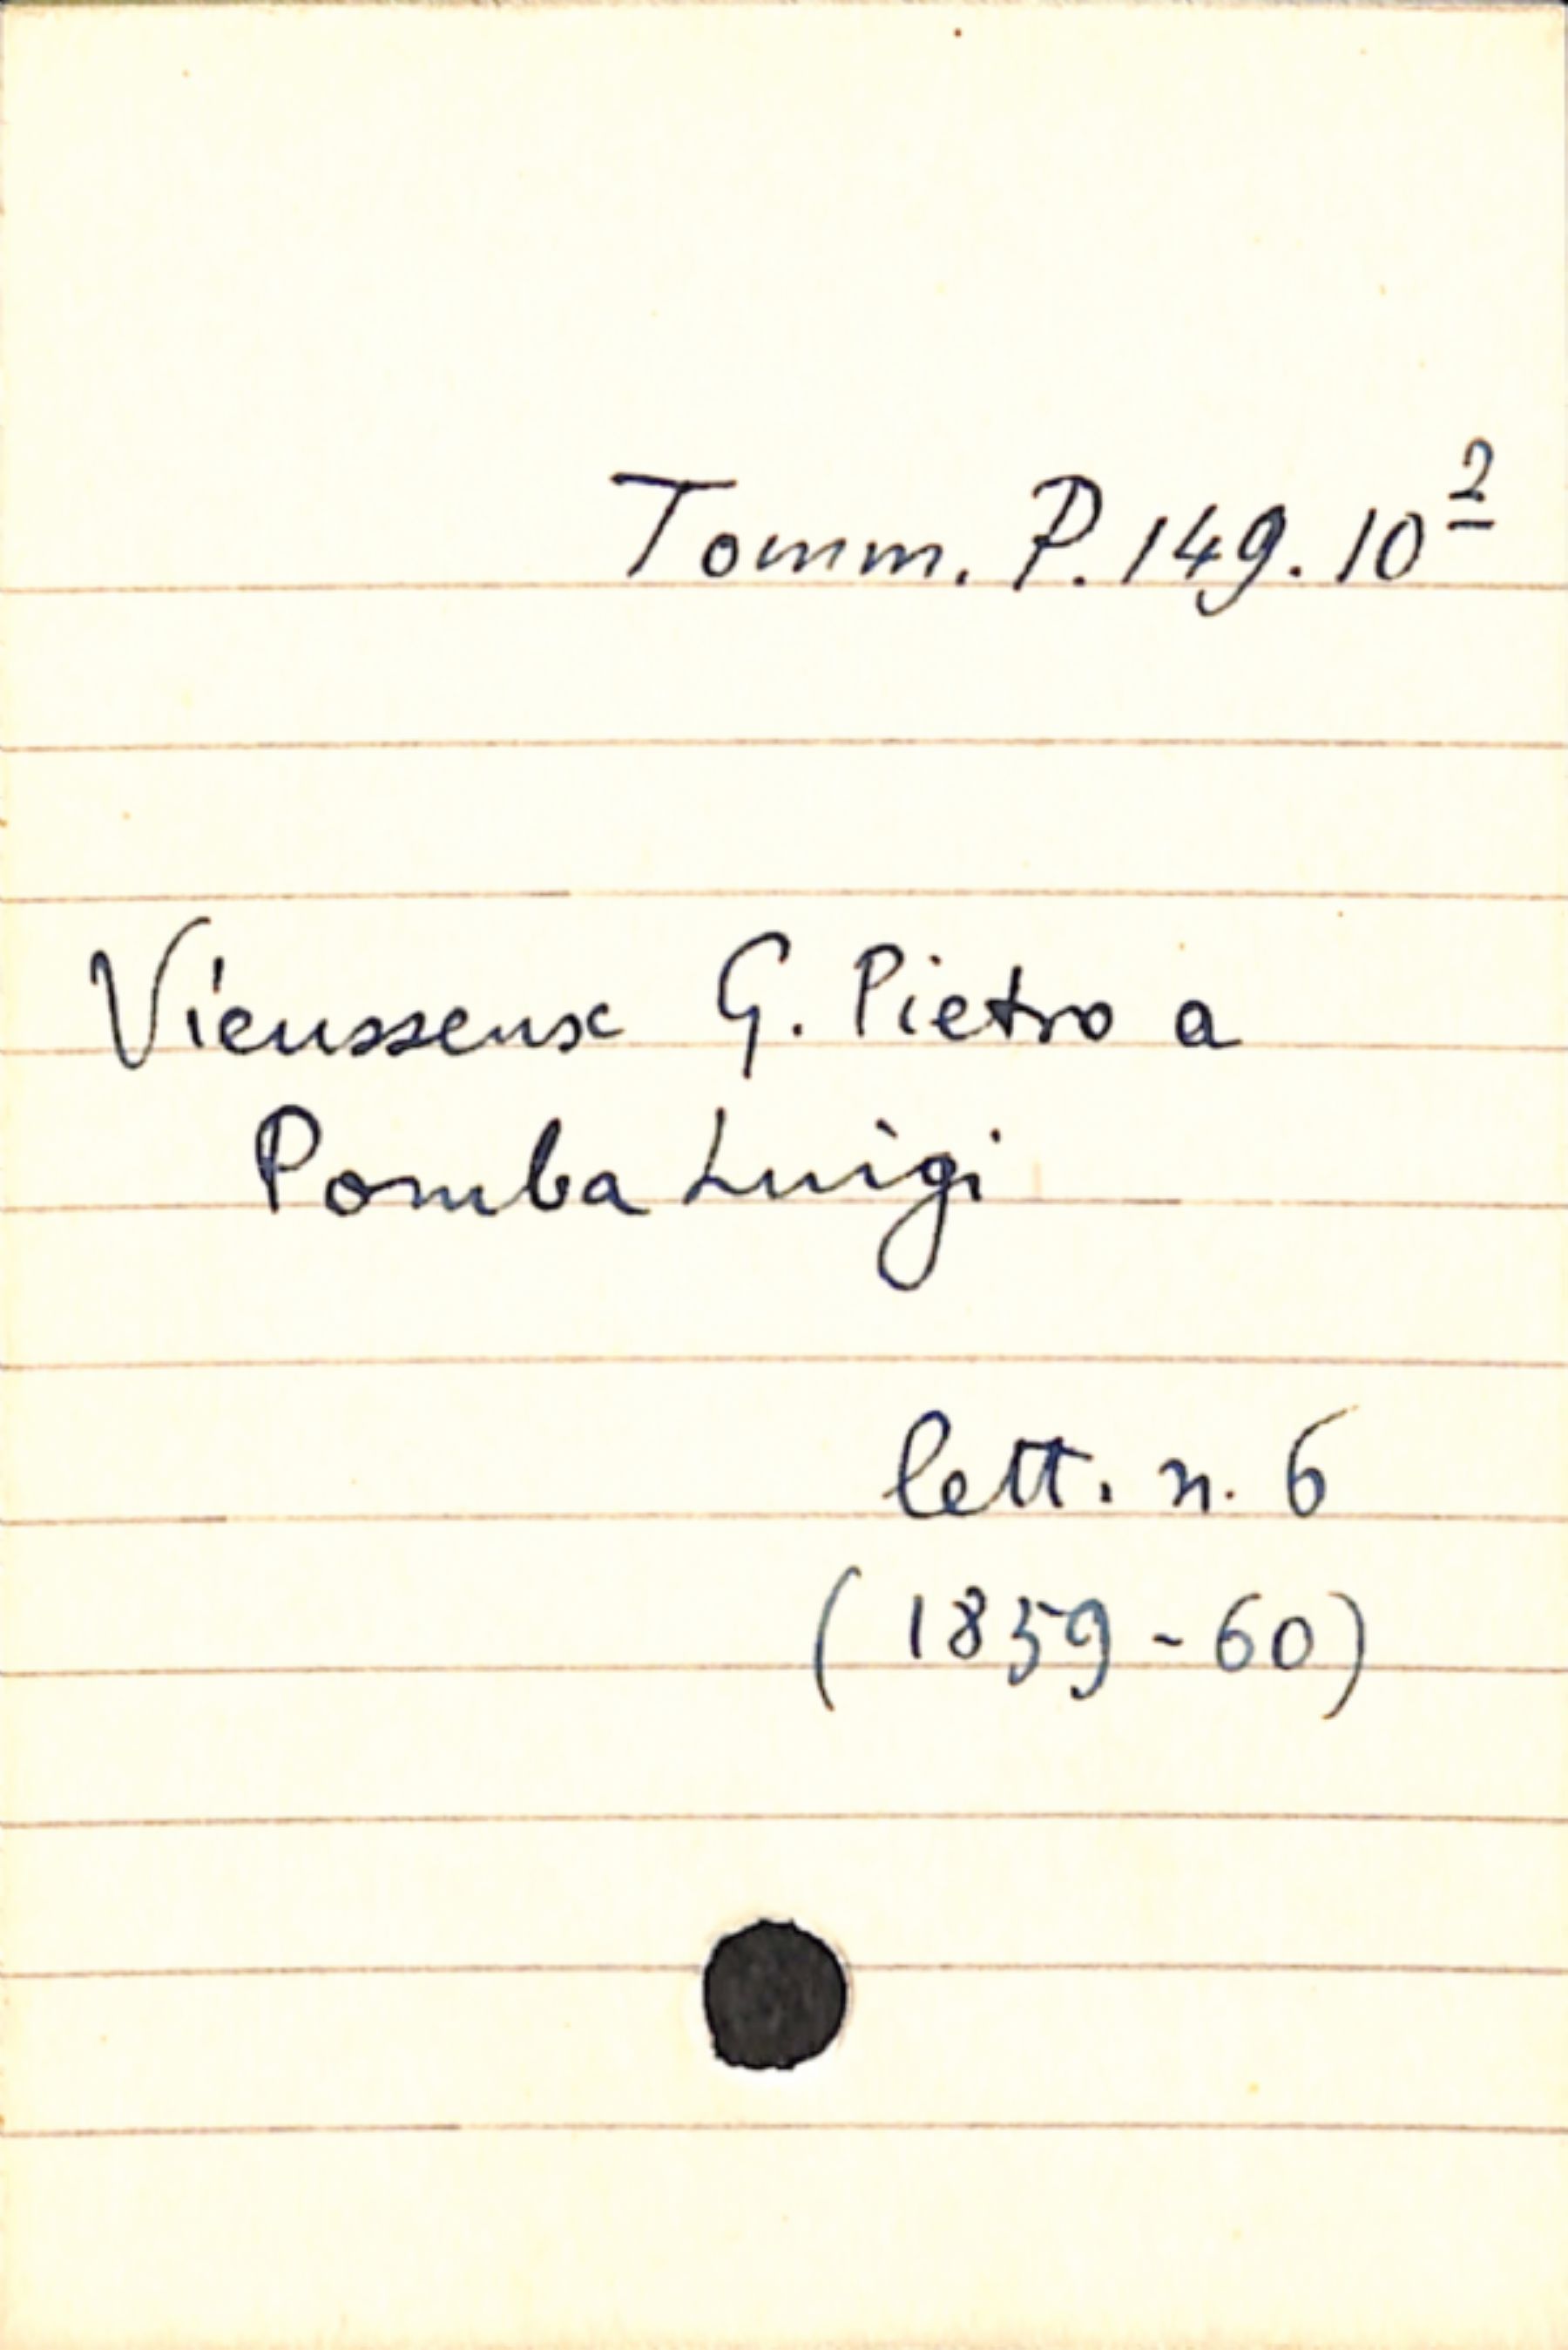 Tomm. P. 149. 10²
Vieusseux G. Pietro a
Pomba Luigi
lett. n. 6
(1859-60)